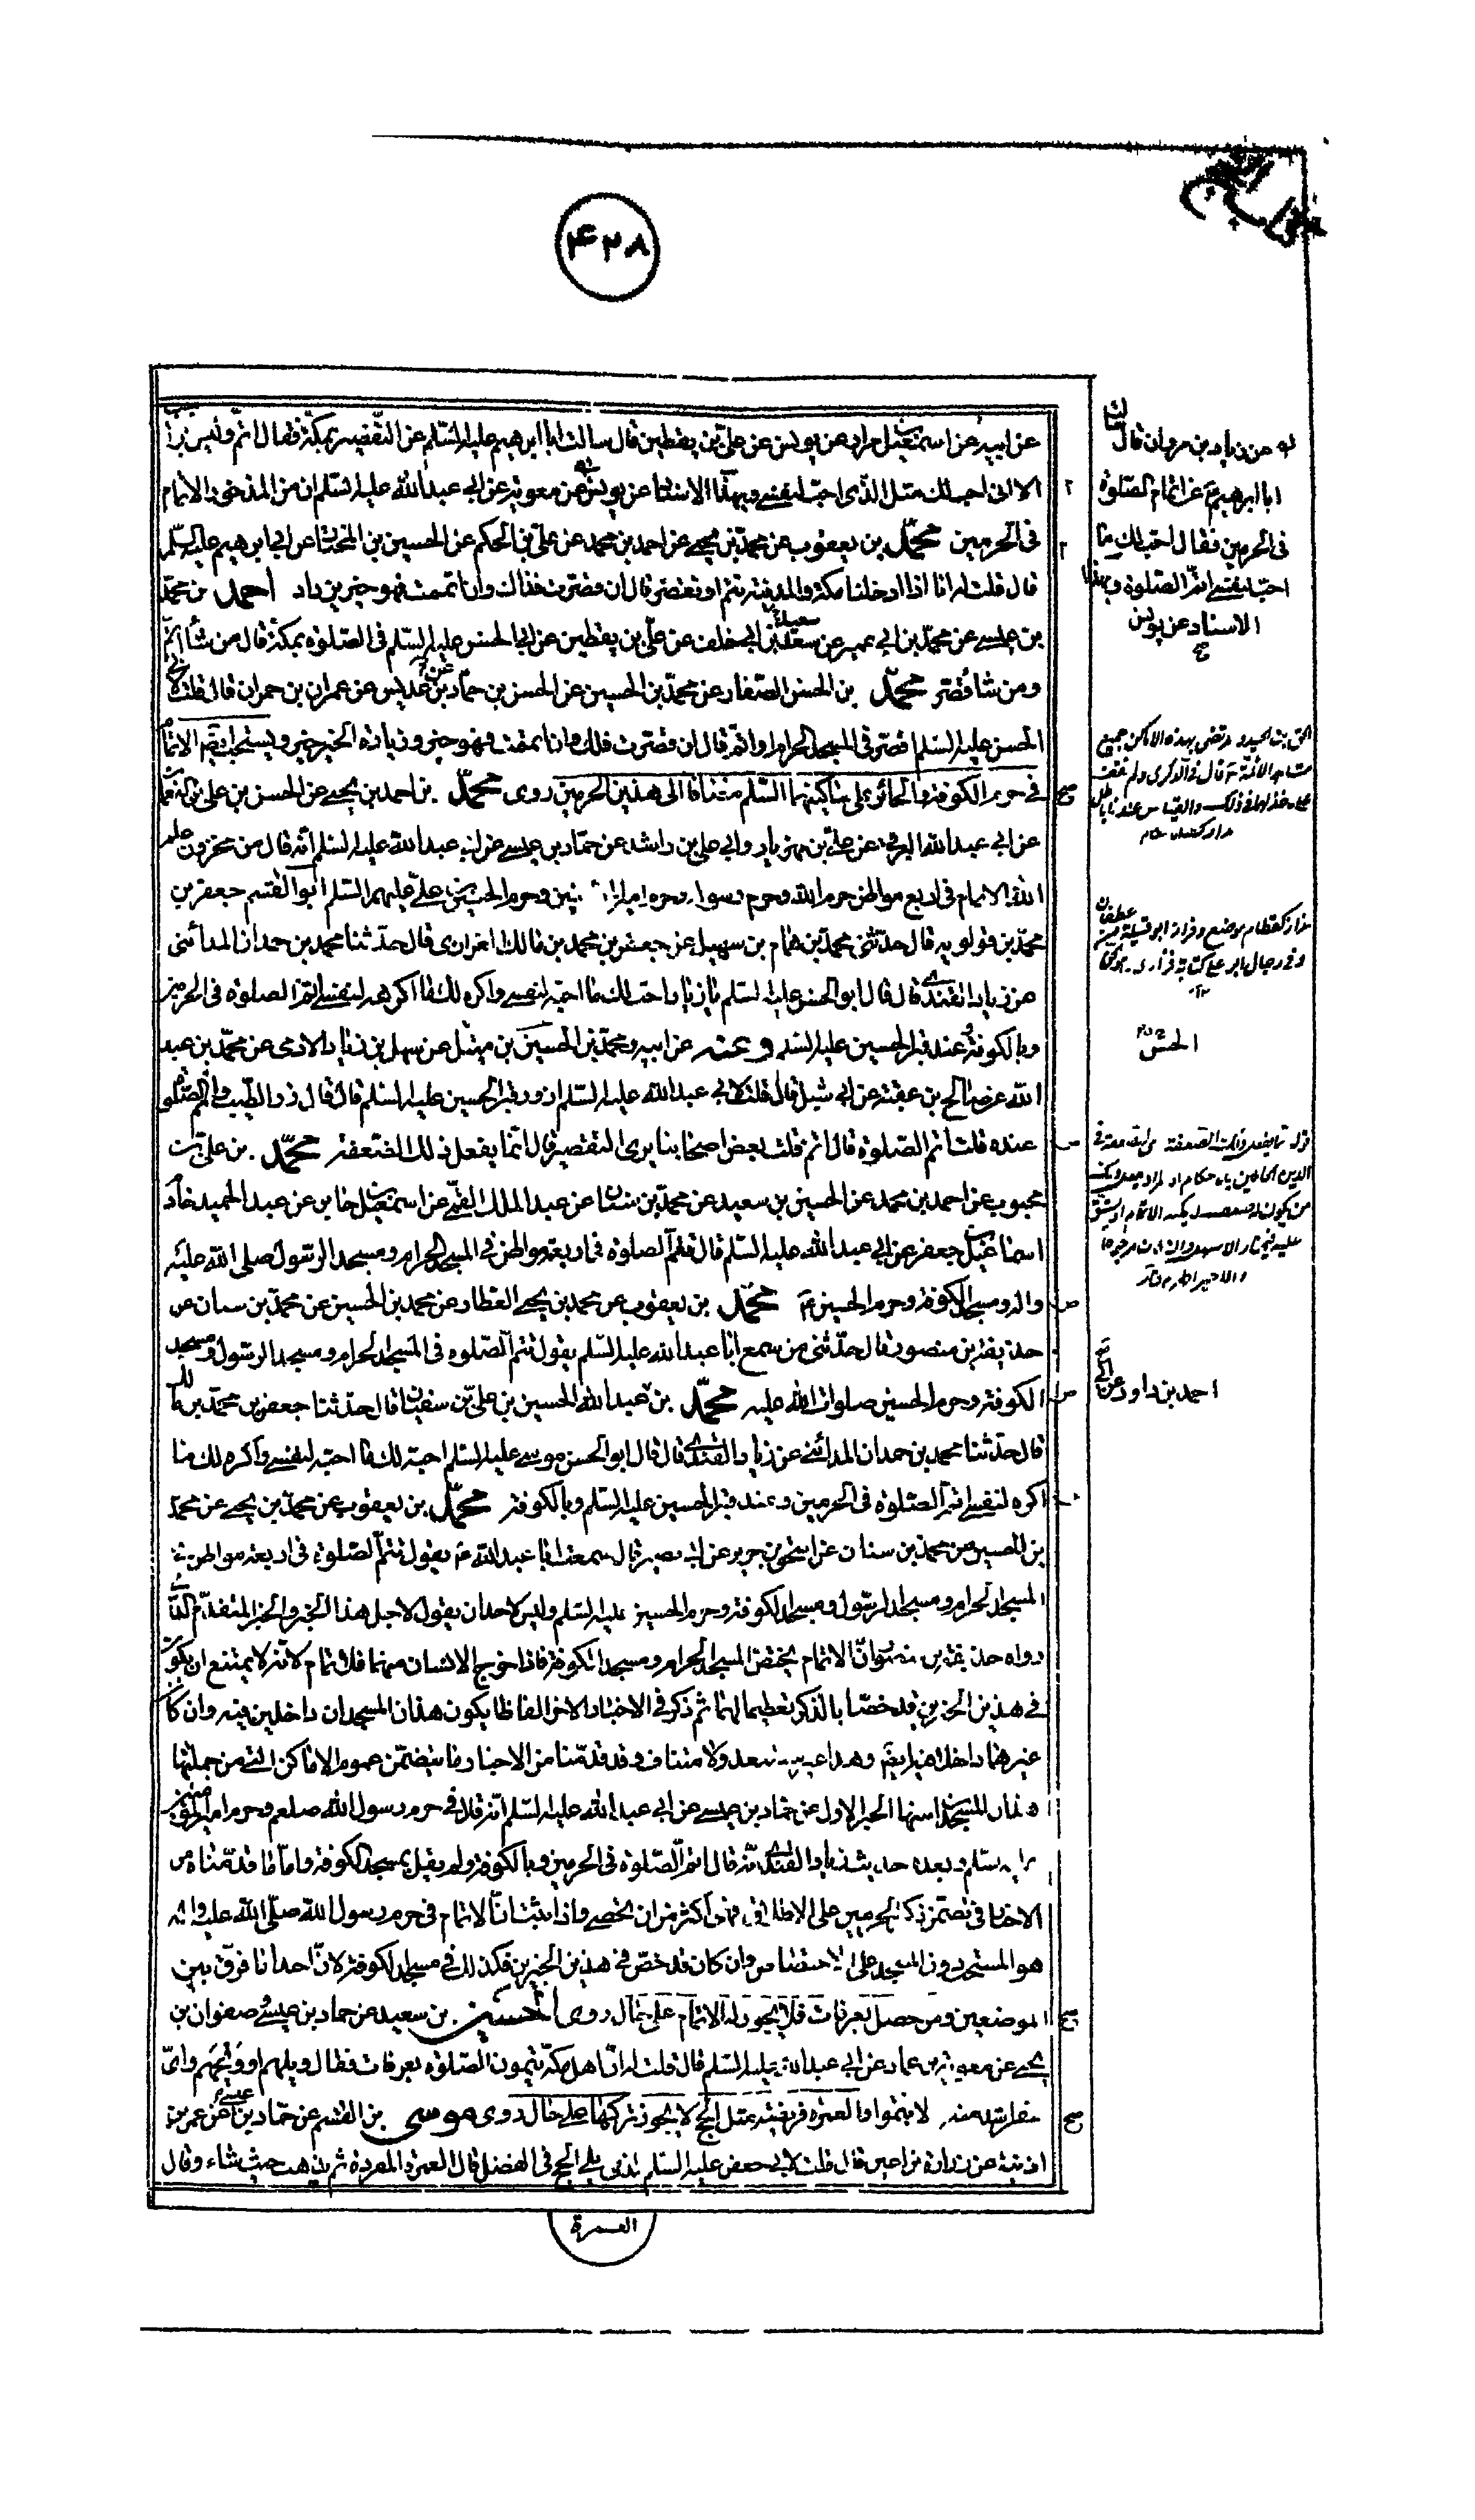 ۴۲۸
عن ابيه عن اسمعيل بن مرار عن يونس عن علي بن يقطين قال سالت ابا ابرهيم عليه السلم عن التقصير بمكة فقال اتم وليس بواجب
الا اني احب لك مثل الذي احب لنفسي وبهذا الاسناد عن يونس عن معوية عن ابي عبد الله عليه السلم ان من المذخور الاتمام
في الحرمين محمد بن يعقوب عن محمد بن يحيى عن احمد بن محمد عن علي بن الحكم عن الحسين بن المختار عن ابي ابرهيم عليه السلم
قال قلت له انا اذا دخلنا مكة والمدينة نتم او نقصر قال ان قصرت فذاك وان اتممت فهو خير يزداد احمد بن محمد
بن عيسى عن محمد بن ابي عمير عن سعد بن ابي خلف عن علي بن يقطين عن ابي الحسن عليه السلم في الصلوة بمكة قال من شاء اتم
ومن شاء قصر محمد بن الحسن الصفار عن محمد بن الحسين عن الحسن بن حماد بن عديس عن عمران بن حمران قال قلت لابي
الحسن عليه السلم اقصر في المسجد الحرام او اتم قال ان قصرت فلك وان اتممت فهو خير وزيادة الخير خير ويستحب ايضا الاتمام
في حرم الكوفة والحائر على ساكنيهما السلم مضافا الى هذين الحرمين روى محمد بن احمد بن يحيى عن الحسن بن علي بن النعمان
عن ابي عبد الله البرقي عن علي بن مهزيار وابي علي بن راشد عن حماد بن عيسى عن ابي عبد الله عليه السلم انه قال من مخزون علم
الله الاتمام في اربع مواطن حرم الله وحرم رسوله وحرم امير وحرم الحسين بن علي عليهم السلم ابو القسم جعفر بن
محمد بن قولويه قال حدثني محمد بن همام بن سهيل عن جعفر بن محمد بن مالك الفزاري قال حدثنا محمد بن حمدان المدائني
عن زياد القندي قال قال ابو الحسن عليه السلم يا زياد احب لك ما احبه لنفسي واكره لك ما اكرهه لنفسي اتم الصلوة في الحرمين
وبالكوفة وعند قبر الحسين عليه السلم وعنه عن ابيه ومحمد بن الحسين بن مثيل عن سهل بن زياد الادمي عن محمد بن عبد
الله عن صالح بن عقبة عن ابي شبل قال قلت لابي عبد الله عليه السلم ازور قبر الحسين عليه السلم قال قال زر الطيب واتم الصلوة
عنده قلت اتم الصلوة قال اتم قلت بعض اصحابنا يرى التقصير قال انما يفعل ذلك الضعفة محمد بن علي بن
محبوب عن احمد بن محمد عن الحسين بن سعيد عن محمد بن سنان عن عبد الملك القمي عن اسمعيل بن جابر عن عبد الحميد خادم
اسماعيل بن جعفر عن ابي عبد الله عليه السلم قال تتم الصلوة في اربعة مواطن في المسجد الحرام ومسجد الرسول صلى الله عليه
واله ومسجد الكوفة وحرم الحسين ع محمد بن يعقوب عن محمد بن يحيى العطار عن محمد بن الحسين عن محمد بن سنان عن
حذيفة بن منصور قال حدثني من سمع ابا عبد الله عليه السلم يقول تتم الصلوة في المسجد الحرام ومسجد الرسول ومسجد
الكوفة وحرم الحسين صلوات الله عليه محمد بن عبد الله الحسين بن علي بن سفيان قال حدثنا جعفر بن محمد بن مالك
قال حدثنا محمد بن حمدان المدائني عن زياد القندي قال قال ابو الحسن موسى عليه السلم احب لك ما احبه لنفسي واكره لك ما
اكره لنفسي اتم الصلوة في الحرمين وعند قبر الحسين عليه السلم وبالكوفة محمد بن يعقوب عن محمد بن يحيى عن محمد
بن الحسين عن محمد بن سنان عن اسحق بن جرير عن ابي بصير قال سمعت ابا عبد الله ع يقول تتم الصلوة في اربعة مواطن في
المسجد الحرام ومسجد الرسول ومسجد الكوفة وحرم الحسين عليه السلم وليس لاحد ان يقول لاجل هذا الخبر والخبر المتقدم الذي
رواه حذيفة بن منصور ان الاتمام يختص المسجد الحرام ومسجد الكوفة فاذا خرج الانسان منهما فلا تمام لانه لا يمتنع ان يكون
في هذين الخبرين قد خصا بالذكر تعظيما لهما ثم ذكر في الاخبار الاخر الفاظا يكون هذان المسجدان داخلين فيه وان كان
غيرهما داخلا فيه ايضا وهذا غير مستبعد ولا متناف وقد قدمنا من الاخبار ما يتضمن عموم الاماكن التي من جملتها
هذان المسجدان منها الخبر الاول عن حماد بن عيسى عن ابي عبد الله عليه السلم انه قال في حرم رسول الله صلعم وحرم امير المؤمنين
عليه السلم وبعده حديث زياد القندي انه قال اتم الصلوة في الحرمين وبالكوفة ولم يقل بمسجد الكوفة واما ما قدمناه من
الاخبار في تضمن ذكر الحرمين على الاطلاق فهي اكثر من ان تحصى واذا ثبت ان الاتمام في حرم رسول الله صلى الله عليه واله
هو المستحب دون المسجد على الاختصاص وان كان قد خص في هذين الخبرين فكذلك في مسجد الكوفة لان احدا ما فرق بين
الموضعين ومن حصل بعرفات فلا يجوز له الاتمام على حال روى الحسين بن سعيد عن حماد بن عيسى وصفوان بن
يحيى عن معوية بن عمار عن ابي عبد الله عليه السلم قال قلت له ان اهل مكة يتمون الصلوة بعرفات فقال ويلهم او ويحهم واي
سفر اشد منه لا يتموا والعمرة فريضة مثل الحج لا يجوز تركها على حال روى موسى بن القسم عن حماد بن عيسى عن عمر بن
اذينة عن زرارة بن اعين قال قلت لابي جعفر عليه السلم الذي يلي الحج في الفضل قال العمرة المفردة ثم يذهب حيث شاء وقال
العمرة
عن زياد بن مروان قال سالت
ابا ابرهيم ع عن اتمام الصلوة
في الحرمين فقال احب لك ما
احب لنفسي اتم الصلوة وبهذا
الاسناد عن يونس
صح
احمد بن داود عن